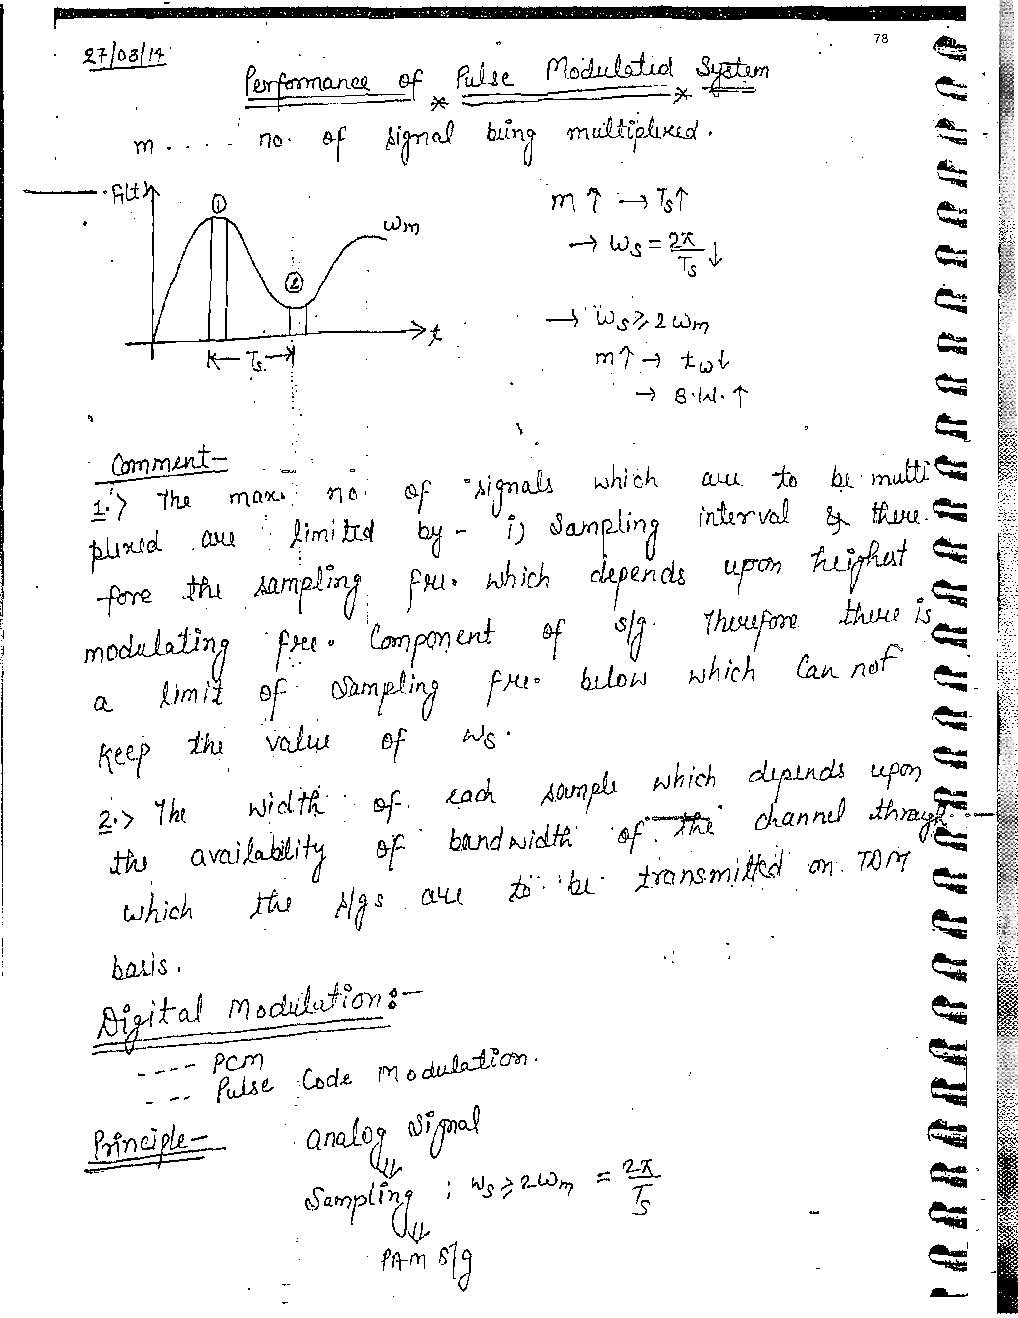 78
27/03/14
Performance of Pulse Modulated System
m . . . . . no. of signal being multiplexed.
fi(t)
①
ωm
②
t
Ts
m ↑ → Ts↑
→ ωs = 2π/Ts ↓
→ ωs ≥ 2ωm
m↑ → tw↓
→ B.W. ↑
Comment-
1.> The max. no. of signals which are to be multi
plexed are limited by - i) Sampling interval & there-
-fore the sampling fre. which depends upon heighest
modulating fre. Component of s/g. Therefore there is
a limit of Sampling fre. below which can not
keep the value of ws.
2.> The width of each sample which depends upon
the availability of bandwidth of the channel through
which the s/gs are to be transmitted on TDM
basis.
Digital Modulation:-
---- PCM
---- Pulse Code Modulation.
Principle- analog signal
⇓
Sampling : ws ≥ 2ωm = 2π/Ts
⇓
PAM s/g